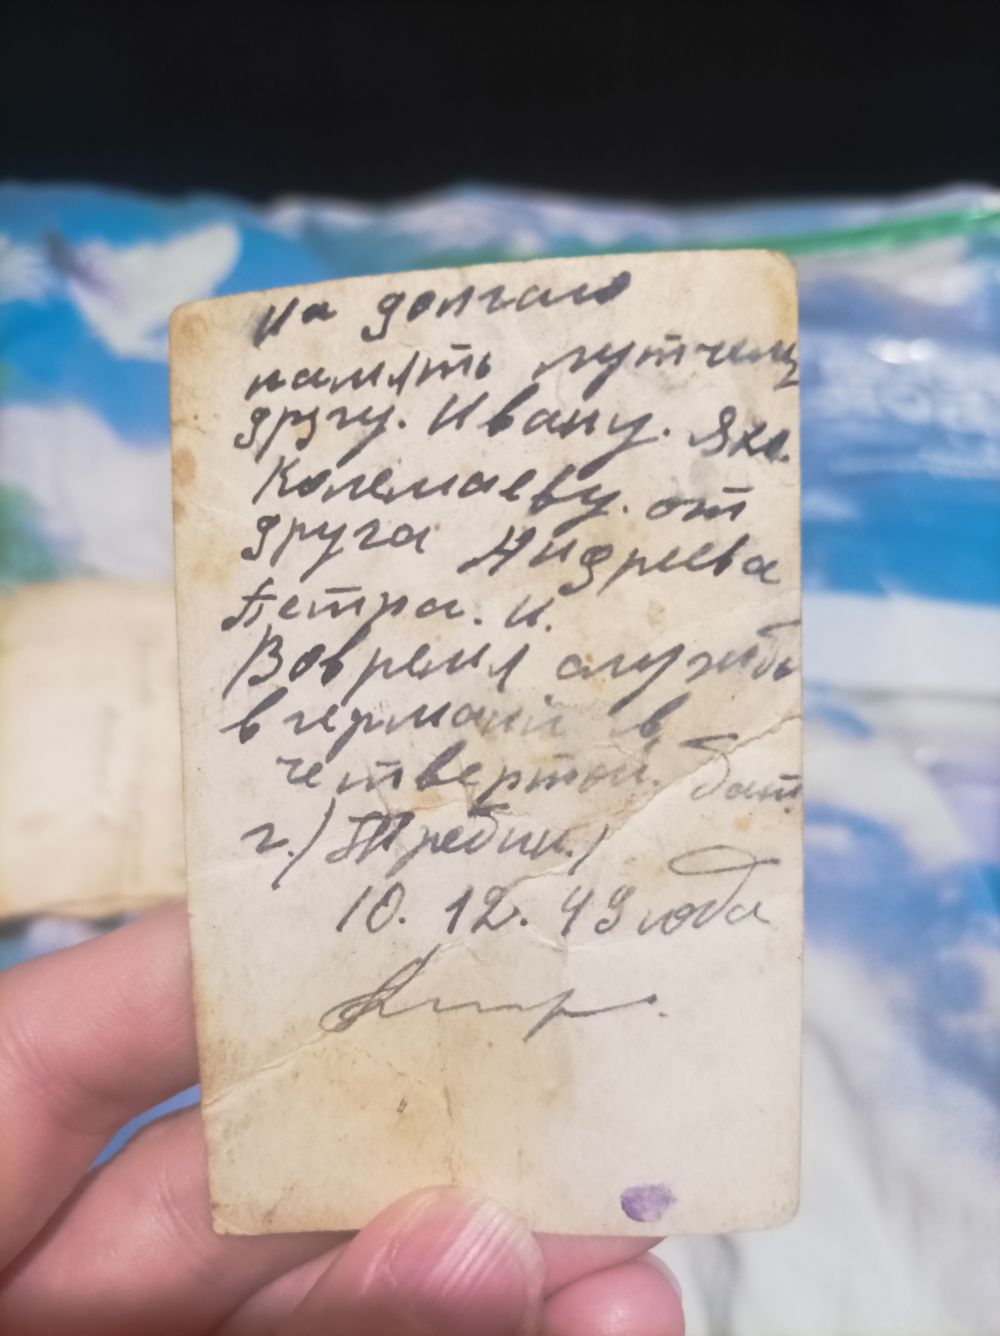 На долгаю
память лутчему
другу. Ивану. Як.
Колемаеву. от
друга Андреева
Петра. И.
Вовремя службы
в германи в
четвертой. бат.
г. (Требин.)
10. 12. 49 года